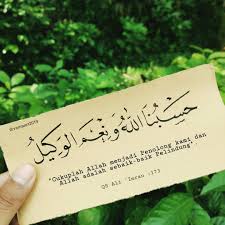 @vanwan2019
حَسْبُنَا اللهُ وَنِعْمَ الْوَكِيْلُ
"Cukuplah Allah menjadi Penolong kami dan
Allah adalah sebaik-baik Pelindung".
QS Ali 'Imran :173